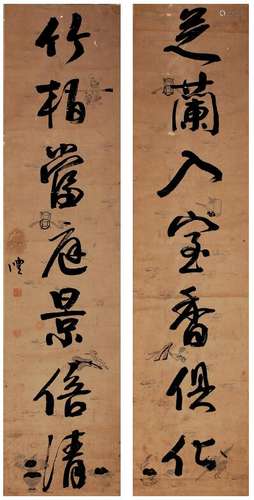 芝蘭入室香俱化
竹栢當庭景倍清